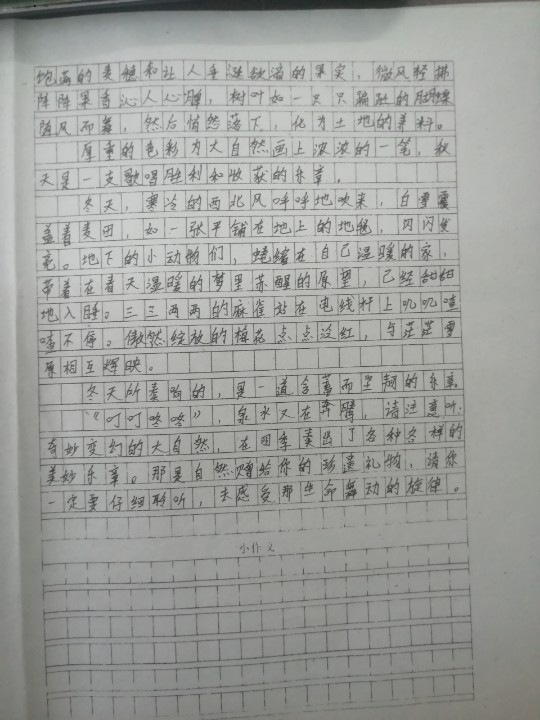 饱满的麦穗和让人垂涎欲滴的果实，微风轻拂
阵阵果香沁人心脾，树叶如一只只翩跹的蝴蝶
随风而舞，然后悄然落下，化为土地的养料。
厚重的色彩为大自然画上浓浓的一笔，秋
天是一支歌唱胜利和收获的乐章。
冬天，寒冷的西北风呼呼地吹来，白雪覆
盖着麦田，如一张平铺在地上的地毯，闪闪发
亮。地下的小动物们，蜷缩在自己温暖的家，
带着在春天温暖的梦里苏醒的愿望，已经甜甜
地入睡。三三两两的麻雀站在电线杆上叽叽喳
喳不停。傲然绽放的梅花点点泛红，与茫茫雪
原相互辉映。
冬天所奏响的，是一道含蓄而坚韧的乐章
“叮叮咚咚”，泉水又在奔腾，请注意听
奇妙变幻的大自然，在四季奏出了各种各样的
美妙乐章。那是自然赠给你的珍遗礼物，请你
一定要仔细聆听，去感受那生命舞动的旋律。
小作文